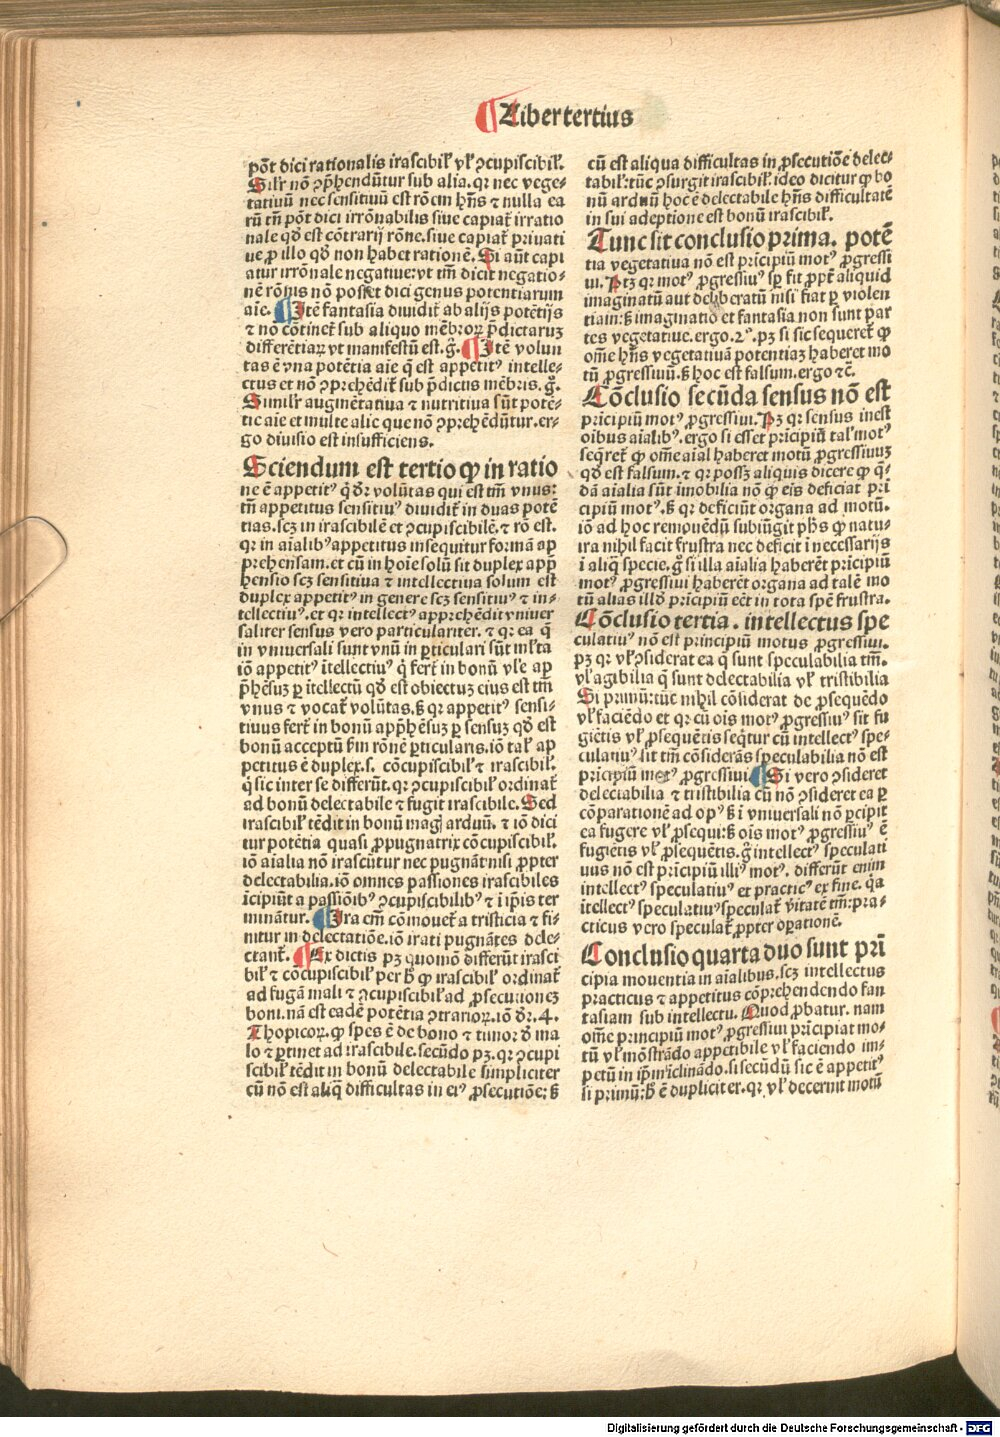 Liber tertius
põt dici rationalis irascibił vł ꝯcupiscibił.
Silr̃ nõ ꝯp̃hendũtur sub alia. qꝛ nec vege-
tatiuũ nec sensitiuũ est rõem hñs ⁊ nulla ea
rũ tñ põt dici irrõnabilis siue capiat̃ irratio
nale qđ est cõtrarij rõne. siue capiat̃ priuati
ue ꝓ illo qđ non habet rationẽ. Si aũt capi
atur irrõnale negatiue: vt tm̃ dicit negatio-
nẽ rõnis nõ posset dici genus potentiarum
aĩe. Itẽ fantasia diuidit̃ ab alijs potẽtijs
⁊ no cõtinet̃ sub aliquo mẽbroꝝ p̃dictarum
differẽtiaꝝ vt manifestũ est. g̃. Itẽ volun
tas ẽ vna potẽtia aĩe q̃ est appetitꝰ intelle-
ctus et nõ ꝯprehẽdit̃ sub p̃dicus mẽbris. g̃.
Similr̃ augmẽtatiua ⁊ nutritiua sũt potẽ-
tie aĩe et multe alie que nõ ꝯprehẽdũtur. er-
go diuisio est insufficiens.
Sciendum est tertio ꝙ in ratio
ne ẽ appetitꝰ q̃ dr̃ volũtas qui est tm̃ vnus:
tñ appetitus sensitiuꝰ diuidit̃ in duas potẽ
tias. scꝫ in irascibilẽ et ꝯcupiscibilẽ. ⁊ rõ est.
qꝛ in aĩalibꝰ appetitus insequitur formã ap
prehensam. et cũ in hoĩe solũ sit duplex app̃
hensio scꝫ sensitiua ⁊ intellectiua solum est
duplex appetitꝰ in genere scꝫ sensitiuꝰ ⁊ in-
tellectiuꝰ. et qꝛ intellectꝰ apprehẽdit vniuer
saliter sensus vero particulariter. ⁊ qꝛ ea q̃
in vniuersali sunt vnũ in ꝑticulari sũt ml̃ta
iõ appetitꝰ ĩtellectiuꝰ q̃ fert̃ in bonũ vl̃e ap
p̃hẽsuꝫ ꝑ ĩtellectũ qđ est obiectuꝫ eius est tm̃
vnus ⁊ vocat̃ volũtas. ꝫ qꝛ appetitꝰ sensi-
tiuus fert̃ in bonũ app̃hẽsuꝫ ꝑ sensuꝫ qđ est
bonũ acceptũ ẜm rõnẽ ꝑticularis. iõ tał ap
petitus ẽ duplex. s. cõcupiscibił ⁊ irascibił.
q̃ sic inter se differũt. qꝛ ꝯcupiscibił ordinat̃
ad bonũ delectabile ⁊ fugit irascibile. Sed
irascibił tẽdit in bonũ magĩ arduũ. ⁊ iõ dici
tur potẽtia quasi ꝓpugnatrix cõcupiscibił.
iõ aĩalia nõ irascũtur nec pugnãt nisi ꝓpter
delectabilia. iõ omnes passiones irascibiles
ĩcipiũt a passiõibꝰ ꝯcupiscibilibꝰ ⁊ ĩ ip̃is ter
minãtur. Ira em̃ cõmouet̃ a tristicia ⁊ fi-
nitur in delectatiõe. iõ irati pugnãtes dele-
ctant̃. Ex dictis pꝫ quomõ differũt irasci
bił ⁊ cõcupiscibił per h̃ ꝙ irascibił ordinat̃
ad fugã mali ⁊ ꝯcupiscibił ad ꝓsecutionem
boni. nã est eadẽ potẽtia ꝯtrarioꝝ. iõ dr̃. 4.
Thopicoꝝ. ꝙ spes ẽ de bono ⁊ timor đ ma
lo ⁊ ꝑtinet ad irascibile. secũdo pꝫ. qꝛ ꝯcupi
scibił tẽdit in bonũ delectabile simpliciter
cũ nõ est aliq̃ difficultas in eiꝰ ꝓsecutiõe: ꝫ
cũ est aliqua difficultas in ꝓsecutiõe delec-
tabił: tũc ꝯsurgit irascibił. ideo dicitur ꝙ bo
nũ arduũ hoc ẽ delectabile hñs difficultatẽ
in sui adeptione est bonũ irascibił.
Tunc sit conclusio prima. potẽ
tia vegetatiua nõ est prĩcipiũ motꝰ ꝓgressi
ui. Ptꝫ qꝛ motꝰ ꝓgressiuꝰ sꝑ fit ꝓpt̃ aliquid
imaginatũ aut deliberatũ nisi fiat ꝑ violen
tiam: ꝫ imaginatio et fantasia non sunt par
tes vegetatiue. ergo. 2º. pꝫ si sic sequeret̃ ꝙ
om̃e hñs vegetatiuã potentiaꝫ haberet mo
tũ ꝓgressiuũ. ꝫ hoc est falsum. ergo ⁊c̃.
Cõclusio secũda sensus nõ est
prĩcipiũ motꝰ ꝓgressiui. Pꝫ qꝛ sensus inest
oĩbus aĩalibꝰ. ergo si esset prĩcipiũ tał motꝰ
seq̃ret̃ ꝙ om̃e aĩal haberet motũ ꝓgressiuuꝫ
qđ est falsum. ⁊ qꝛ possꝫ aliquis dicere ꝙ q̃-
dã aĩalia sũt ĩmobilia nõ ꝙ eis deficiat pri
cipiũ motꝰ. ꝫ qꝛ deficiũt organa ad motũ.
iõ ad hoc remouẽdũ subiũgit ph̃s ꝙ natu-
ra nihil facit frustra nec deficit ĩ necessarijs
ĩ aliq̃ specie. g̃ si illa aĩalia haberẽt prĩcipiũ
motꝰ ꝓgressiui haberẽt organa ad talẽ mo
tũ alias illđ prĩcipiũ eẽt in tota spẽ frustra.
Cõclusio tertia. intellectus spe
culatiuꝰ nõ est principiũ motus ꝓgressiui.
pꝫ qꝛ vł ꝯsiderat ea q̃ sunt speculabilia tm̃.
vł agibilia q̃ sunt delectabilia vł tristibilia
Si primũ: tũc nihil cõsiderat de ꝓsequẽdo
vł faciẽdo et qꝛ cũ oĩs motꝰ ꝓgressiuꝰ sit fu
giẽtis vł ꝓsequẽtis seq̃tur cũ intellectꝰ spe-
culatiuꝰ sit tm̃ cõsiderãs speculabilia nõ est
prĩcipiũ motꝰ ꝓgressiui. Si vero ꝯsideret
delectabilia ⁊ tristibilia cũ nõ ꝯsideret ea ꝑ
cõparationẽ ad opꝰ ꝫ ĩ vniuersali nõ p̃cipit
ea fugere vł ꝓsequi: ꝫ oĩs motꝰ ꝓgressiuꝰ ẽ
fugiẽtis vł ꝓsequẽtis. g̃ intellectꝰ speculati
uus nõ est prĩcipiũ illiꝰ motꝰ. differũt enim
intellectꝰ speculatiuꝰ et practicꝰ ex fine. q̃a
ĩtellectꝰ speculatiuꝰ speculat̃ v̾itatẽ tm̃: pra-
cticus vero speculat̃ ꝓpter oꝑationẽ.
Conclusio quarta duo sunt prĩ
cipia mouentia in aĩalibus. scꝫ intellectus
practicus ⁊ appetitus cõprehendendo fan
tasiam sub intellectu. Quod ꝓbatur. nam
om̃e principiũ motꝰ ꝓgressiui prĩcipiat mo-
tũ vł mõstrãdo appetibile vł faciendo im-
petũ in ip̃m ĩclinãdo. si secũdũ sic ẽ appetitꝰ
si primũ: h̃ ẽ dupliciter. qꝛ vł decernit motũ
Digitalisierung gefördert durch die Deutsche Forschungsgemeinschaft - DFG